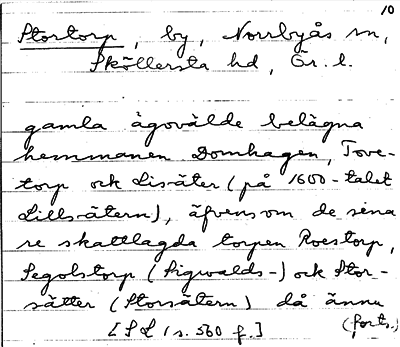 10
Stortorp, by, Norrbyås sn,
Sköllersta hd, Ör. l.
gamla ågovälde belägna
hemmanen Domhagen, Tove-
torp och Lisäter (på 1600-talet
Lillsätern), äfvensom de sena
re skattlagda torpen Roestorp,
Segolstorp (Sigwalds-) och Stor-
sätter (Storsätern) då ännu
[SL 1 s. 560 f.] (forts.)